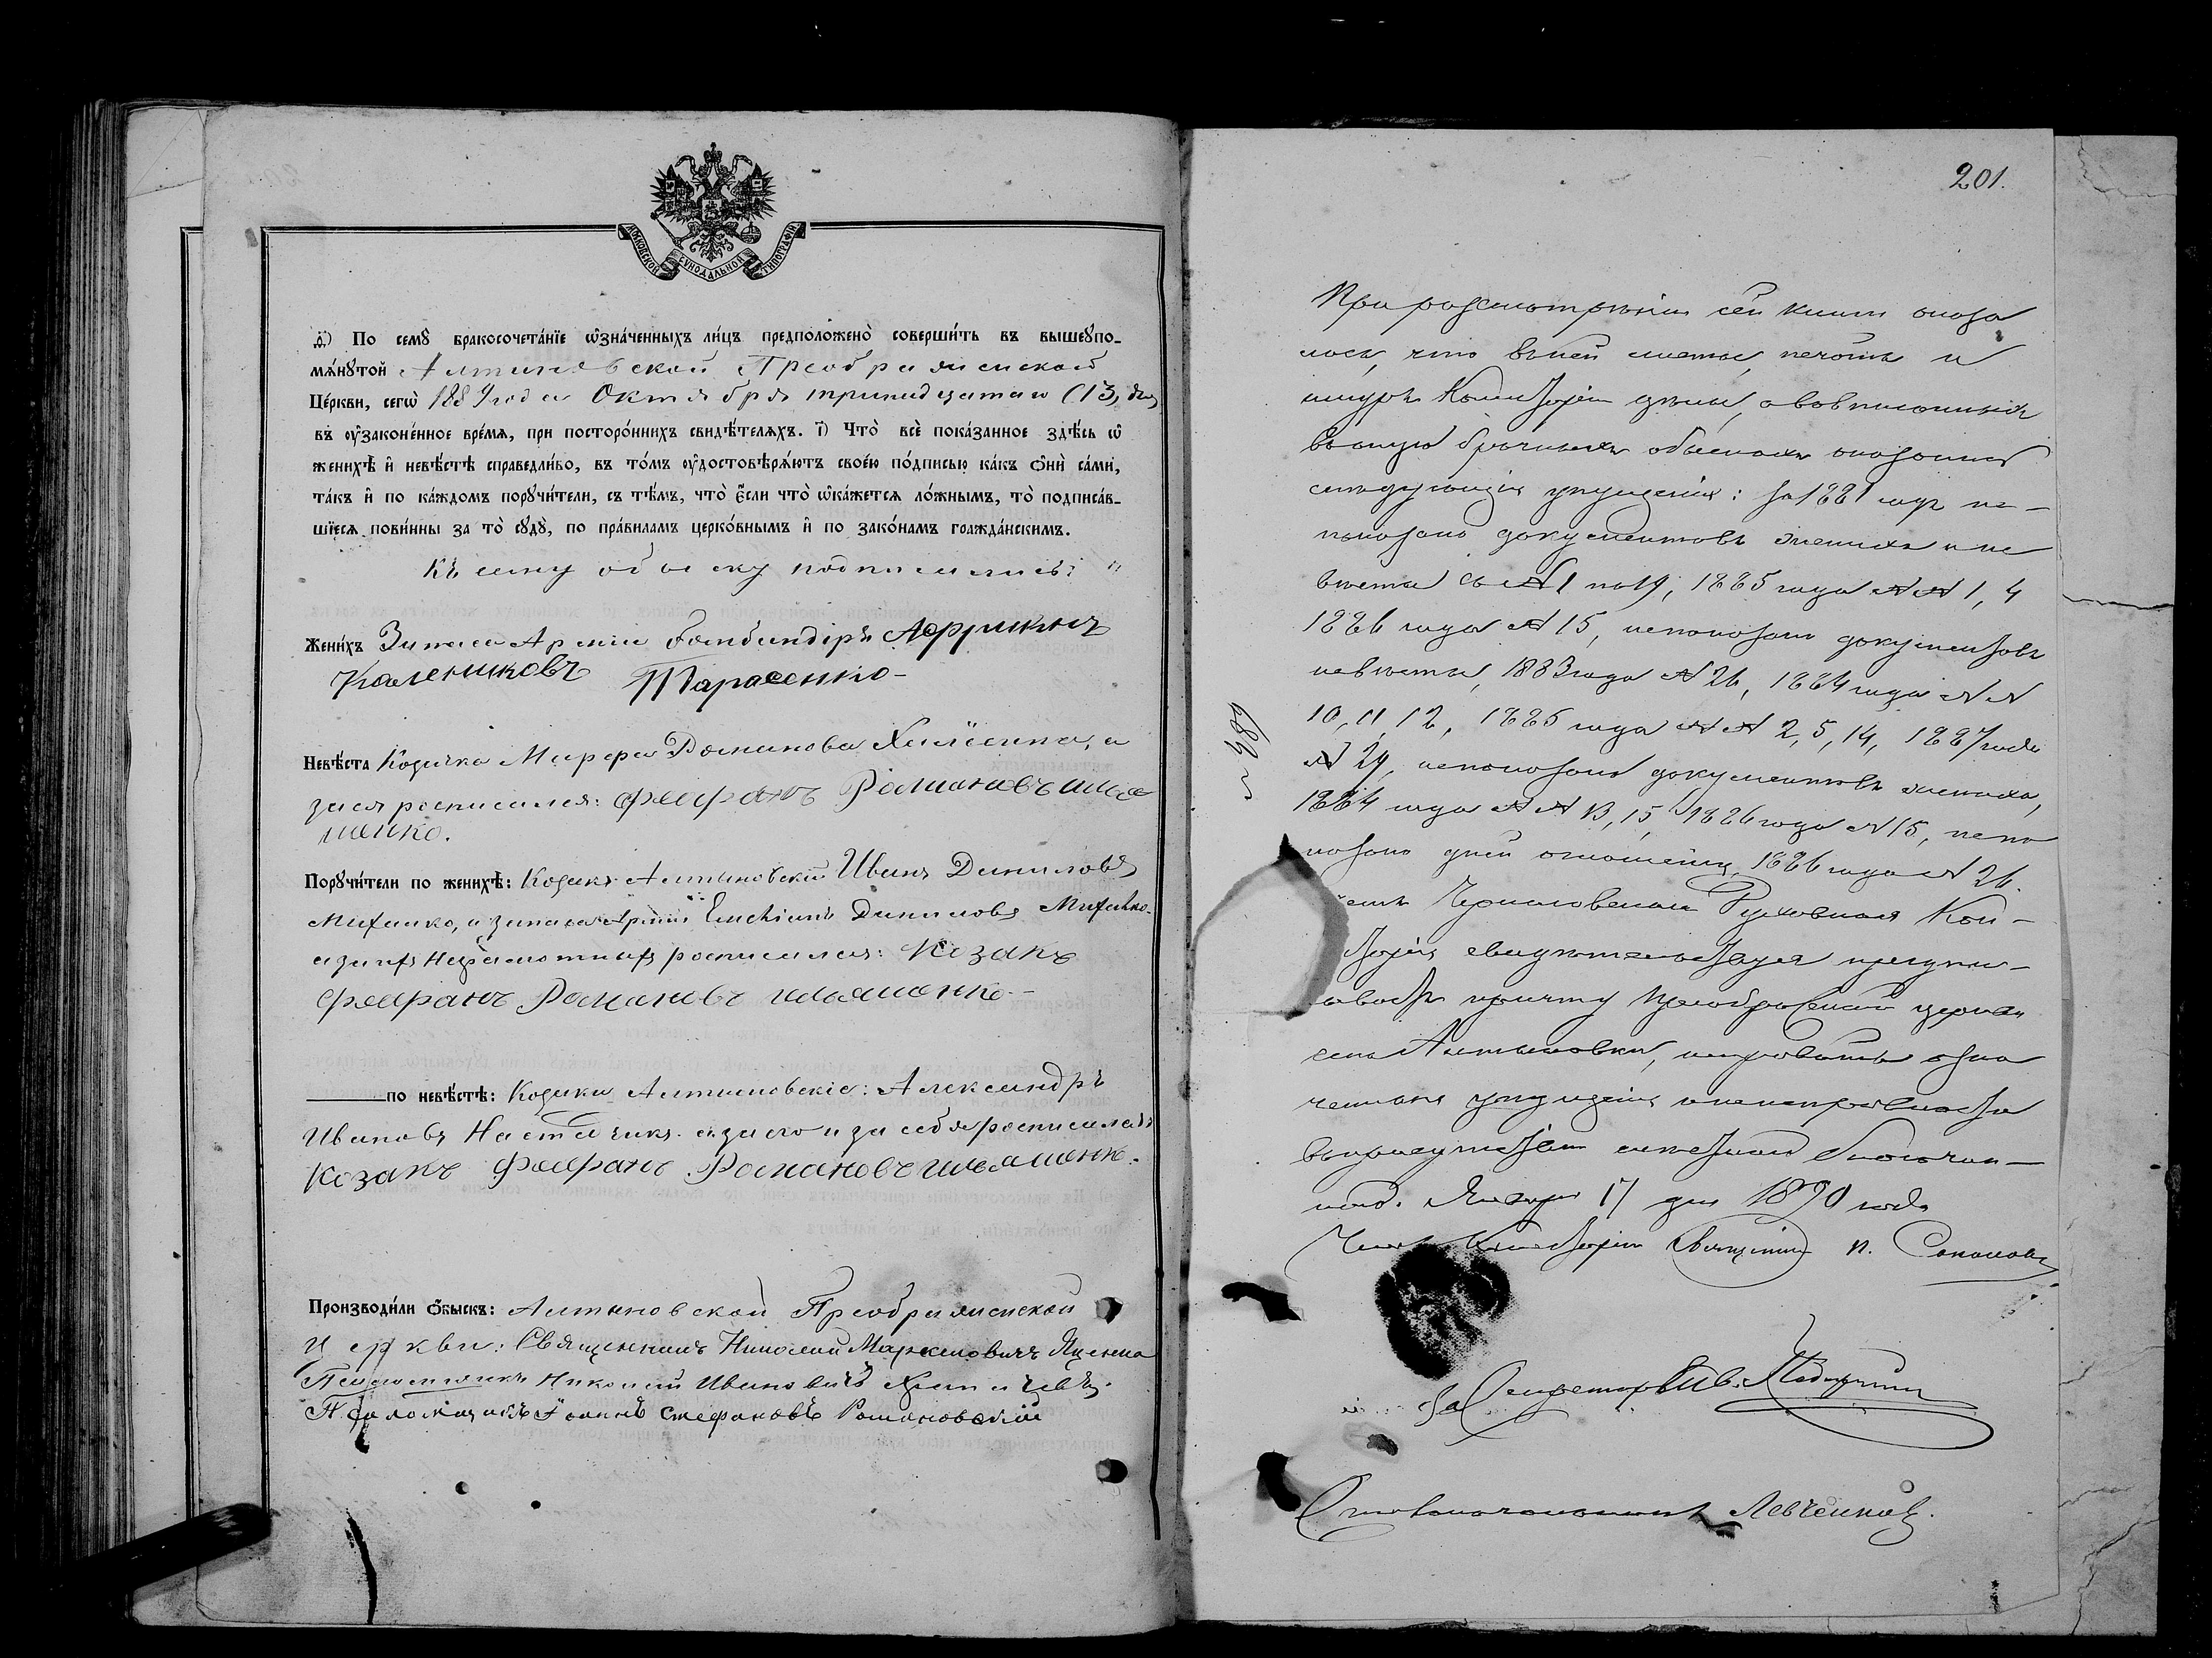 МОСКОВСКОЙ СѴНОДАЛЬНОЙ ТИПОГРАФІИ
д҃і) По семꙋ̀ бракосочета́нїе ѡ҆зна́ченныхъ ли́цъ предположено̀ соверши́ть въ вышеꙋпо-
мѧ́нꙋтой Алтыновской Преображенской
Це́ркви, сегѡ̀ 1889 года Октября тринадцатаго (13) дня
въ ᲂу҆законе́нное вре́мѧ, при посторо́ннихъ свидѣ́телѧхъ. і҃) Что̀ всѐ пока́занное здѣ́сь ѡ҆
женихѣ̀ и҆ невѣ́стѣ справедли́во, въ то́мъ ᲂу҆достовѣрѧ́ютъ свое́ю по́дписью ка́къ ѻ҆нѝ са́ми,
та́къ и҆ по ка́ждомъ порꙋчи́тели, съ тѣ́мъ, что̀ є҆́сли что̀ ѡ҆ка́жетсѧ ло́жнымъ, то̀ подписа́в-
шїесѧ пови́нны за то̀ сꙋдꙋ̀, по пра́виламъ церко́внымъ и҆ по зако́намъ гражда́нскимъ.
Къ сему обыску подписались:
Жени́хъ Запаса Арміи бомбандіръ
Калениковъ Тарасенко
Невѣ́ста Козачка Марфа Романова а
за ея росписался: Романовъ Илья
шенко.
Порꙋчи́тели по женихѣ̀: Козакъ Алтыновскій Иванъ Даниловъ
Михалко, и запаса Арміи Даниловъ Михалко
а за нихъ неграмотныхъ росписался: Козакъ
Романовъ Ильяшенко
по невѣ́стѣ: Козаки Алтыновскіе: Александръ
Ивановъ а за его и за себя росписался
Козакъ Романовъ Ильяшенко.
Производи́ли ѻ҆́быскъ: Алтыновской Преображенской
Церкви: Священникъ Николай Маркеловичъ Яценко
Псаломщикъ Николай Ивановичъ
Псаломщикъ Іоаннъ Стефановъ Романовскій
201.
При разсмотрѣніи сей книги оказа
лось, что въ ней листы, печать и
шнуръ Консисторіи цѣлы, а во вписанныхъ
въ оную брачныхъ обыскахъ оказались
слѣдующія упущенія: за 1881 годъ не-
показано документовъ жениха и не
вѣсты съ № 1 по 19, 1885 года №№ 1, 4
1886 года № 15, непоказано документовъ
невѣсты, 1883 года № 26, 1884 года №№
10, 11, 12, 1885 года №№ 2, 5, 14, 1887 года
№ 29, непоказано документовъ жениха,
1884 года №№ 13, 15, 1886 года № 15, непо
казано дней оглашенія 1886 года № 26.
Черниговская Духовная Кон-
систорія свидѣтельствуя предпи-
сываетъ причту Преображенской церкви
села Алтыновки, исправить озна
ченныя упущенія и неисправности
Января 17 дня 1890 года
Членъ Консисторіи Священникъ П. Соколовъ
За Секретаря
Столоначальникъ Левченковъ.
№ 989